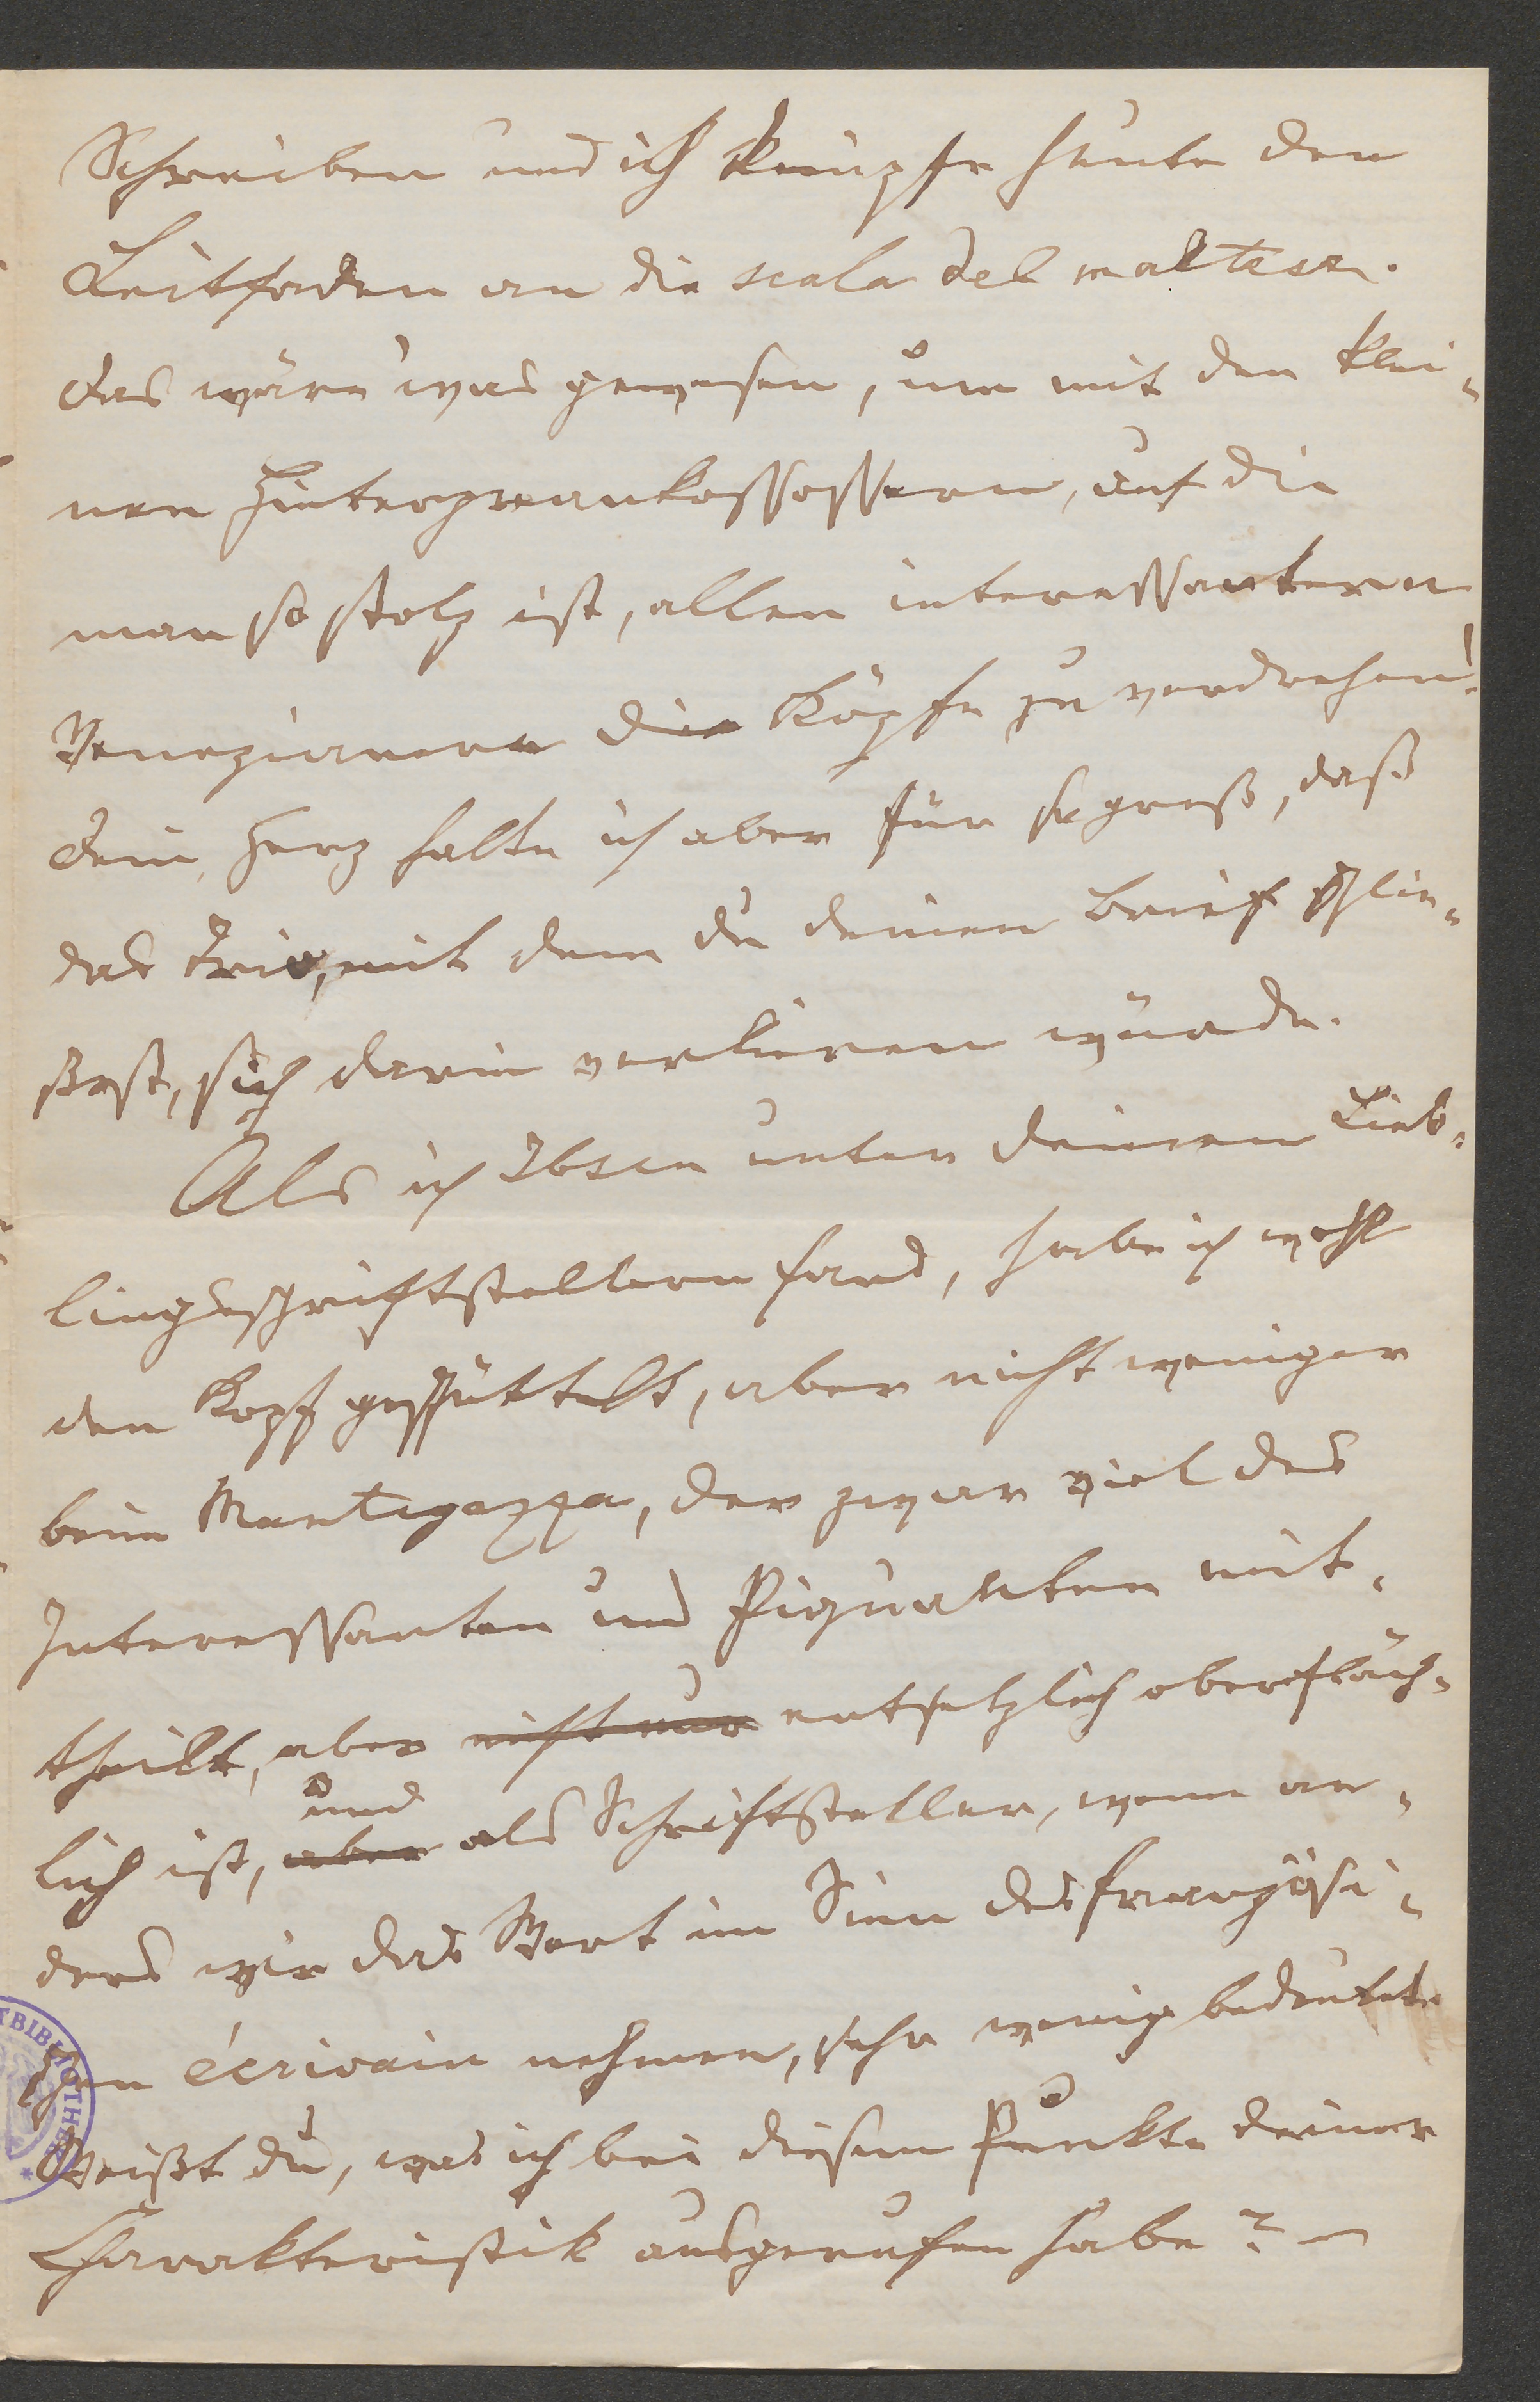 Schreiben und ich knüpfe heute den
Leitfaden an die scala del maltese.
das wäre was gewesen, um mit den klei-
nen auf die
man so stolz ist, allen interessantern
Venezianern die Köpfe zu verdrehen!
dein Herz halte ich aber für so groß, daß
das Trio, mit dem du deinen Brief schlie-
ßest, sich darin verlieren würde.
Als ich Ibsen unter deinen Lieb-
lingsschriftstellern fand, habe ich wohl
den Kopf geschüttelt, aber nicht weniger
beim Mantegazza, der zwar viel des
Interessanten und Piquanten mit-
theilt, aber nicht nur entsetzlich oberfläch-
lich ist, aber und als Schriftsteller, wenn an-
ders wir das Wort im Sinn des französi-
schen écrivain nehmen, sehr wenig bedeutet.
Weißt du, was ich bei diesem Punkte deiner
Charakteristik ausgerufen habe? –